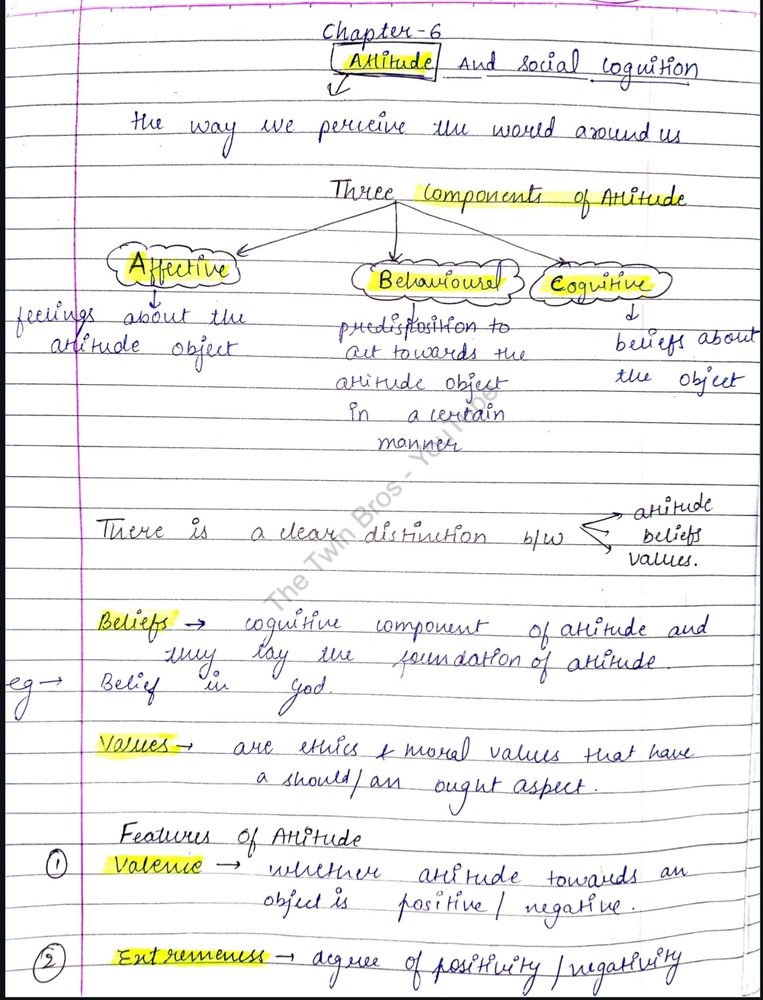 Chapter-6
Attitude And Social Cognition
the way we perceive the world around us
Three Components of Attitude
Affective
Behavioural
Cognitive
feelings about the
attitude object
predisposition to
act towards the
attitude object
in a certain
manner
beliefs about
the object
There is a clear distinction b/w
attitude
beliefs
values.
Beliefs → cognitive component of attitude and
they lay the foundation of attitude.
eg → Belief in God.
Values → are ethics & moral values that have
a should/an ought aspect.
Features of Attitude
① Valence → whether attitude towards an
object is positive/negative.
② Extremeness → degree of positivity/negativity
The Twin Bros - YouTube